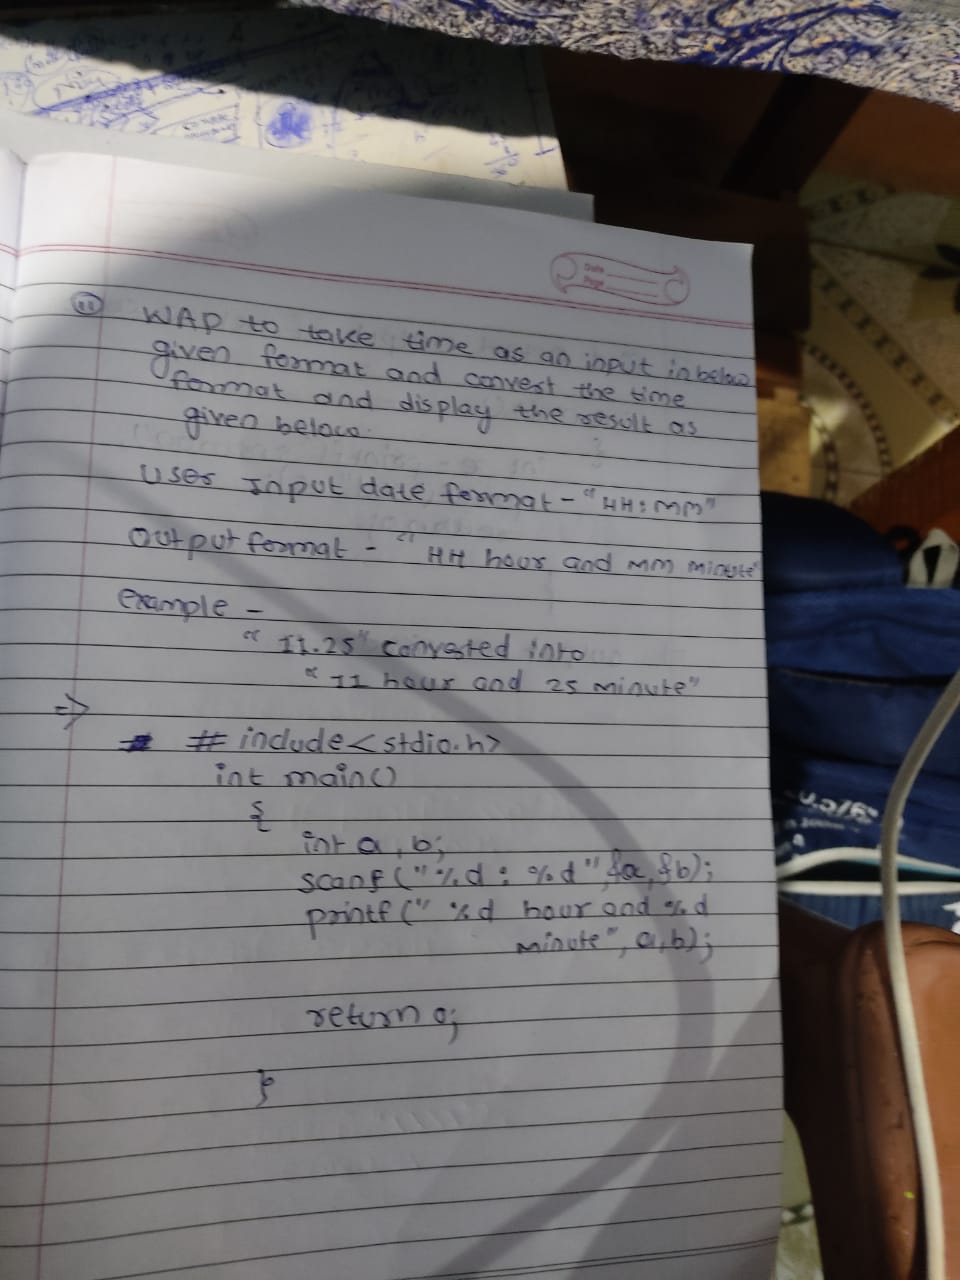 Date
Page
11 WAP to take time as an input in below
given format and convert the time
format and display the result as
given below.
User Input date format - "HH:MM"
Output format - "HH hour and MM minute"
example -
"11.25" converted into
"11 hour and 25 minute"
=>
# include<stdio.h>
int main()
{
int a, b;
scanf("%d : %d", &a, &b);
printf(" %d hour and %d
minute", a, b);
return 0;
}